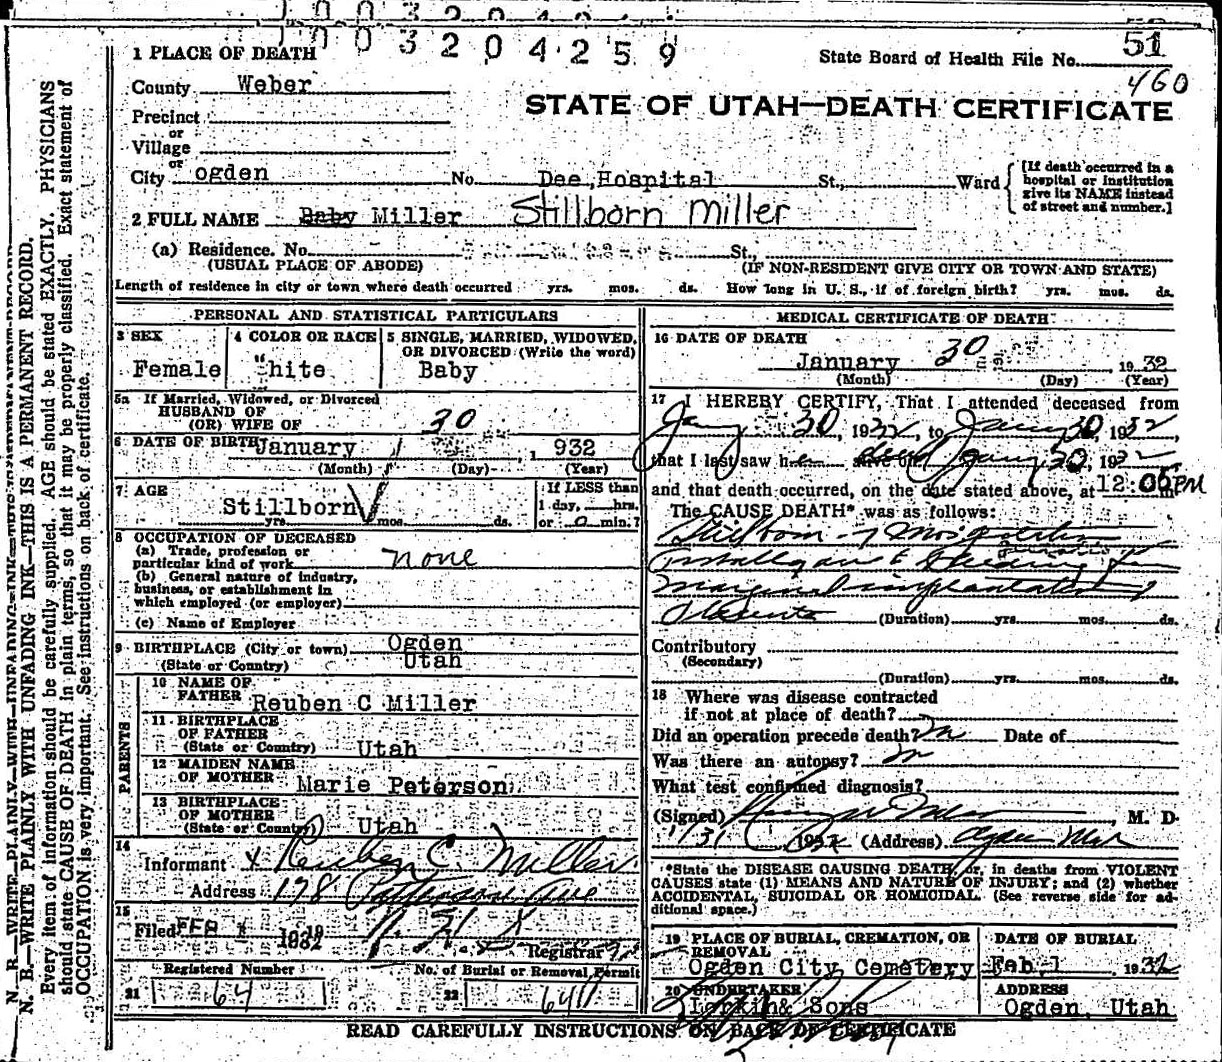 0 0 3 2 0 4 2 5 9
51
1 PLACE OF DEATH
State Board of Health File No.
460
County Weber
STATE OF UTAH—DEATH CERTIFICATE
Precinct
or
Village
or
City Ogden No. Dee Hospital St., Ward
[If death occurred in a hospital or institution give its NAME instead of street and number.]
2 FULL NAME Baby Miller Stillborn Miller
(a) Residence. No. St.,
(USUAL PLACE OF ABODE) (IF NON-RESIDENT GIVE CITY OR TOWN AND STATE)
Length of residence in city or town where death occurred yrs. mos. ds. How long in U. S., if of foreign birth? yrs. mos. ds.
PERSONAL AND STATISTICAL PARTICULARS
3 SEX 4 COLOR OR RACE 5 SINGLE, MARRIED, WIDOWED, OR DIVORCED (Write the word)
Female "hite Baby
5a If Married, Widowed, or Divorced
HUSBAND OF
(OR) WIFE OF
30
6 DATE OF BIRTH January 1 932
(Month) (Day) (Year)
7 AGE
Stillborn
yrs. mos. ds.
If LESS than
1 day, hrs.
or 0 min.?
8 OCCUPATION OF DECEASED
(a) Trade, profession or
particular kind of work none
(b) General nature of industry,
business, or establishment in
which employed (or employer)
(c) Name of Employer
9 BIRTHPLACE (City or town) Ogden
(State or Country) Utah
PARENTS
10 NAME OF
FATHER Reuben C Miller
11 BIRTHPLACE
OF FATHER
(State or Country) Utah
12 MAIDEN NAME
OF MOTHER Marie Peterson
13 BIRTHPLACE
OF MOTHER
(State or Country) Utah
14
Informant x Reuben C. Miller
Address 178 Patterson Ave
15
Filed FEB 1 1932 Registrar
Registered Number No. of Burial or Removal Permit
21 64 22
MEDICAL CERTIFICATE OF DEATH
16 DATE OF DEATH
January 30 1932
(Month) (Day) (Year)
17 I HEREBY CERTIFY, That I attended deceased from
Jany 30, 1932, to Jany 30, 1932,
that I last saw her alive on dead Jany 30, 1932
and that death occurred, on the date stated above, at 12:05 PM
The CAUSE DEATH* was as follows:
Stillborn
marginal implantation of
Placenta (Duration) yrs. mos. ds.
Contributory
(Secondary)
(Duration) yrs. mos. ds.
18 Where was disease contracted
if not at place of death?
Did an operation precede death? no Date of
Was there an autopsy? no
What test confirmed diagnosis?
(Signed) M. D.
1/31 1932 (Address) Ogden Utah
*State the DISEASE CAUSING DEATH, or, in deaths from VIOLENT
CAUSES state (1) MEANS AND NATURE OF INJURY; and (2) whether
ACCIDENTAL, SUICIDAL OR HOMICIDAL. (See reverse side for ad-
ditional space.)
19 PLACE OF BURIAL, CREMATION, OR REMOVAL DATE OF BURIAL
Ogden City Cemetery Feb. 1 1932
20 UNDERTAKER ADDRESS
Larkin & Sons Ogden, Utah
READ CAREFULLY INSTRUCTIONS ON BACK OF CERTIFICATE
N. B.—WRITE PLAINLY WITH UNFADING INK—THIS IS A PERMANENT RECORD.
Every item of information should be carefully supplied. AGE should be stated EXACTLY. PHYSICIANS
should state CAUSE OF DEATH in plain terms, so that it may be properly classified. Exact statement of
OCCUPATION is very important. See instructions on back of certificate.